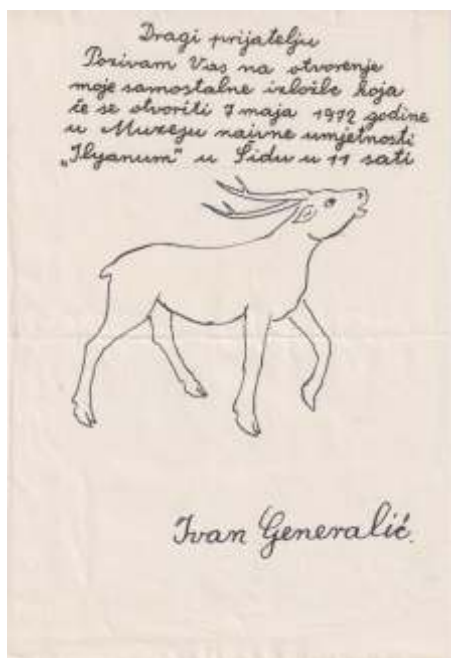 Dragi prijatelju
Pozivam Vas na otvorenje
moje samostalne izložbe koja
će se otvoriti 7 maja 1972 godine
u Muzeju naivne umjetnosti
„Ilyanum" u Šidu u 11 sati
Ivan Generalić.